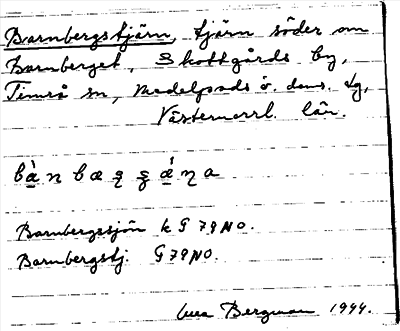 Barnbergstjärn, tjärn söder om
Barnberget, Skottgårds by,
Timrå sn, Medelpads ö. doms. dg,
Västernorrl. län.
Barnbergssjön k G 79 NO.
Barnbergstj. G 79 NO.
Bergman 1944.